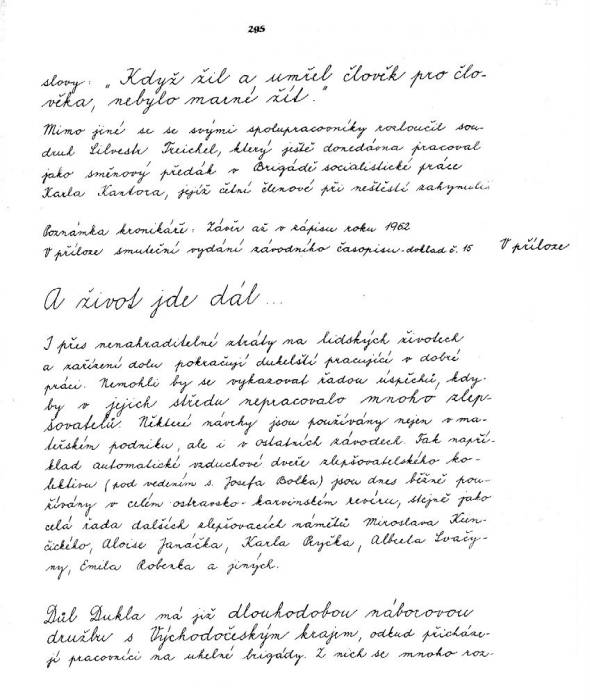 295
slovy: „Když žil a umřel člověk pro člo-
věka, nebylo marné žít."
Mimo jiné se se svými spolupracovníky rozloučil sou-
druh Silvestr Treichel, který ještě donedávna pracoval
jako směnový předák v Brigádě socialistické práce
Karla Kantora, jejíž četní členové při neštěstí zahynuli.
Poznámka kronikáře: Závěr až v zápisu roku 1962
V příloze smuteční vydání závodního časopisu-doklad č. 15 V příloze
A život jde dál...
I přes nenahraditelné ztráty na lidských životech
a zařízení dolu pokračují dukelští pracující v dobré
práci. Nemohli by se vykazovat řadou úspěchů, kdy-
by v jejich středu nepracovalo mnoho zlep-
šovatelů. Některé návrhy jsou používány nejen v ma-
teřském podniku, ale i v ostatních závodech. Tak napří-
klad automatické vzduchové dveře zlepšovatelského ko-
lektivu (pod vedením s. Josefa Bolka) jsou dnes běžně pou-
žívány v celém ostravsko-karvinském revíru, stejně jako
celá řada dalších zlepšovacích námětů Miroslava Kun-
čického, Aloise Janáčka, Karla Ryčka, Alberta Svačy-
ny, Emila Robenka a jiných.
Důl Dukla má již dlouhodobou náborovou
družbu s Východočeským krajem, odkud přicháze-
jí pracovníci na uhelné brigády. Z nich se mnoho roz-